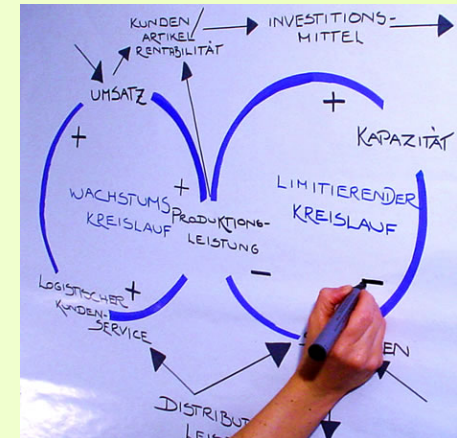 KUNDEN
ARTIKEL
RENTABILITÄT
INVESTITIONS-
MITTEL
UMSATZ
+
+
KAPAZITÄT
WACHSTUMS
KREISLAUF
+
PRODUKTIONS-
LEISTUNG
LIMITIERENDER
KREISLAUF
LOGISTISCHER
KUNDEN-
SERVICE
+
-
-